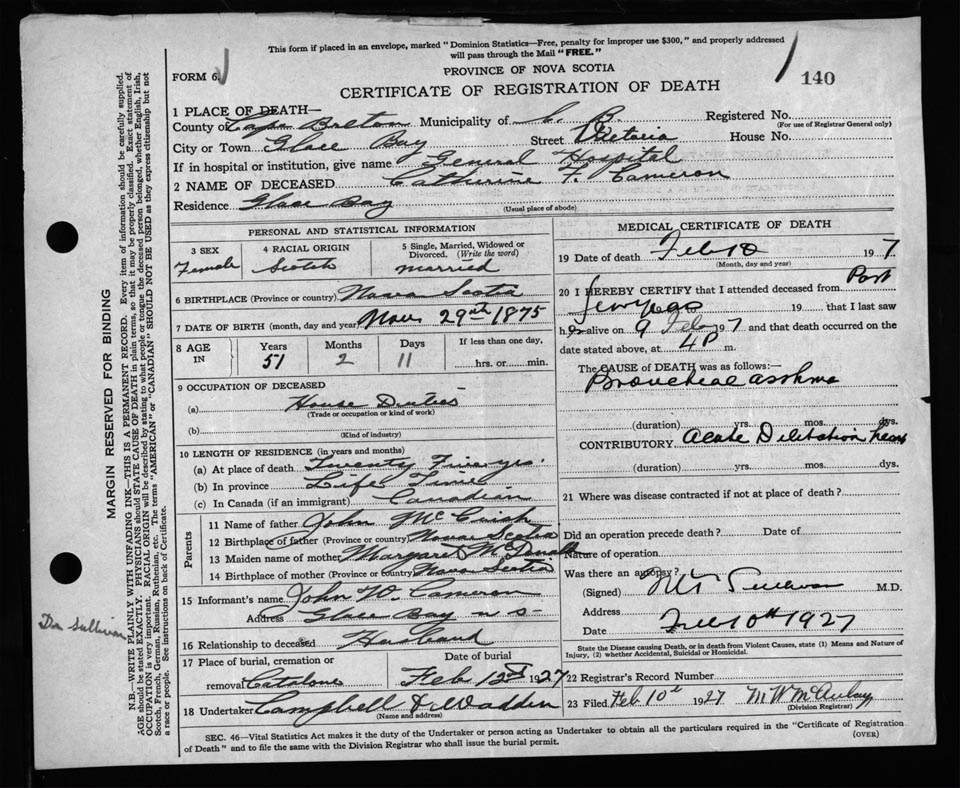 This form if placed in an envelope, marked "Dominion Statistics—Free, penalty for improper use $300," and properly addressed
will pass through the Mail "FREE."
FORM 6
PROVINCE OF NOVA SCOTIA
140
CERTIFICATE OF REGISTRATION OF DEATH
1 PLACE OF DEATH—
County of Cape Breton Municipality of C. B. Registered No.
(For use of Registrar General only)
City or Town Glace Bay Street Victoria House No.
If in hospital or institution, give name General Hospital
2 NAME OF DECEASED Catherine F. Cameron
Residence Glace Bay
(Usual place of abode)
PERSONAL AND STATISTICAL INFORMATION
3 SEX Female
4 RACIAL ORIGIN Scotch
5 Single, Married, Widowed or Divorced. (Write the word) married
6 BIRTHPLACE (Province or country) Nova Scotia
7 DATE OF BIRTH (month, day and year) Nov 29th 1875
8 AGE IN Years 51 Months 2 Days 11 If less than one day, hrs. or min.
9 OCCUPATION OF DECEASED
(a) House Duties
(Trade or occupation or kind of work)
(b)
(Kind of industry)
10 LENGTH OF RESIDENCE (in years and months)
(a) At place of death Twenty Five yrs.
(b) In province Life Time
(c) In Canada (if an immigrant) Canadian
Parents
11 Name of father John
12 Birthplace of father (Province or country) Nova Scotia
13 Maiden name of mother Margaret McDonald
14 Birthplace of mother (Province or country) Nova Scotia
15 Informant's name John W. Cameron
Address Glace Bay N S-
16 Relationship to deceased Husband
17 Place of burial, cremation or removal Catalone
Date of burial Feb 12 1927
18 Undertaker Campbell & Wadden
(Name and address)
MEDICAL CERTIFICATE OF DEATH
19 Date of death Feb 10 1927
(Month, day and year)
20 I HEREBY CERTIFY that I attended deceased from Past
few years to 19 that I last saw
her alive on 9 Feb 1927 and that death occurred on the
date stated above, at 4 P m.
The CAUSE of DEATH was as follows:—
Bronchial asthma
(duration) yrs. mos. dys.
CONTRIBUTORY Acute Dilitation heart
(duration) yrs. mos. dys.
21 Where was disease contracted if not at place of death?
Did an operation precede death? Date of
Nature of operation
Was there an autopsy?
(Signed) Sullivan M.D.
Address
Date Feb 10th 1927
State the Disease causing Death, or in death from Violent Causes, state (1) Means and Nature of
Injury, (2) whether Accidental, Suicidal or Homicidal.
22 Registrar's Record Number
23 Filed Feb 10th 1927 M W McAulay
(Division Registrar)
SEC. 46—Vital Statistics Act makes it the duty of the Undertaker or person acting as Undertaker to obtain all the particulars required in the "Certificate of Registration
of Death" and to file the same with the Division Registrar who shall issue the burial permit.
(OVER)
MARGIN RESERVED FOR BINDING
N.B.—WRITE PLAINLY WITH UNFADING INK—THIS IS A PERMANENT RECORD. Every item of information should be carefully supplied.
AGE should be stated EXACTLY. PHYSICIANS should STATE CAUSE OF DEATH in plain terms, so that it may be properly classified. Exact statement of
OCCUPATION is very important. RACIAL ORIGIN will be described by stating to what people or tongue the deceased person belonged, whether English, Irish,
Scotch, French, German, Russian, Ruthenian, etc. The terms "AMERICAN" or "CANADIAN" SHOULD NOT BE USED as they express citizenship but not
a race or people. See instructions on back of Certificate.
Dan Sullivan